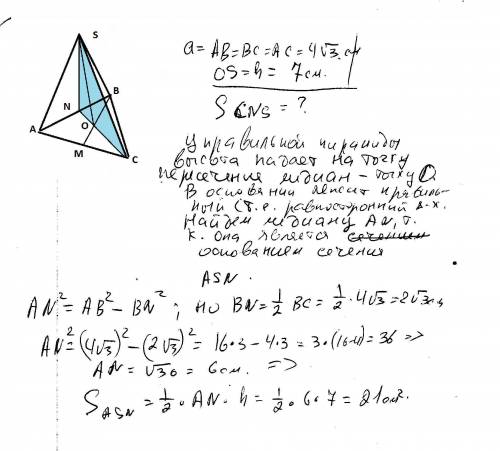 S
B
N
A
O
M
C
a = AB = BC = AC = 4√3 см
OS = h = 7 см.
S CNS = ?
У правильной пирамиды
высота падает на точку
пересечения медиан - точку O.
В основании лежит правиль-
ный (т.е. равносторонний
Найдем медиану AN, т.
к. она является сечением
основанием сечения
ASN.
AN² = AB² - BN² ; но BN = 1/2 BC = 1/2 · 4√3 = 2√3
AN² = (4√3)² - (2√3)² = 16·3 - 4·3 = 3·(16-4) = 36 =>
AN = √36 = 6 см. =>
S ASN = 1/2 · AN · h = 1/2 · 6 · 7 = 21 см².